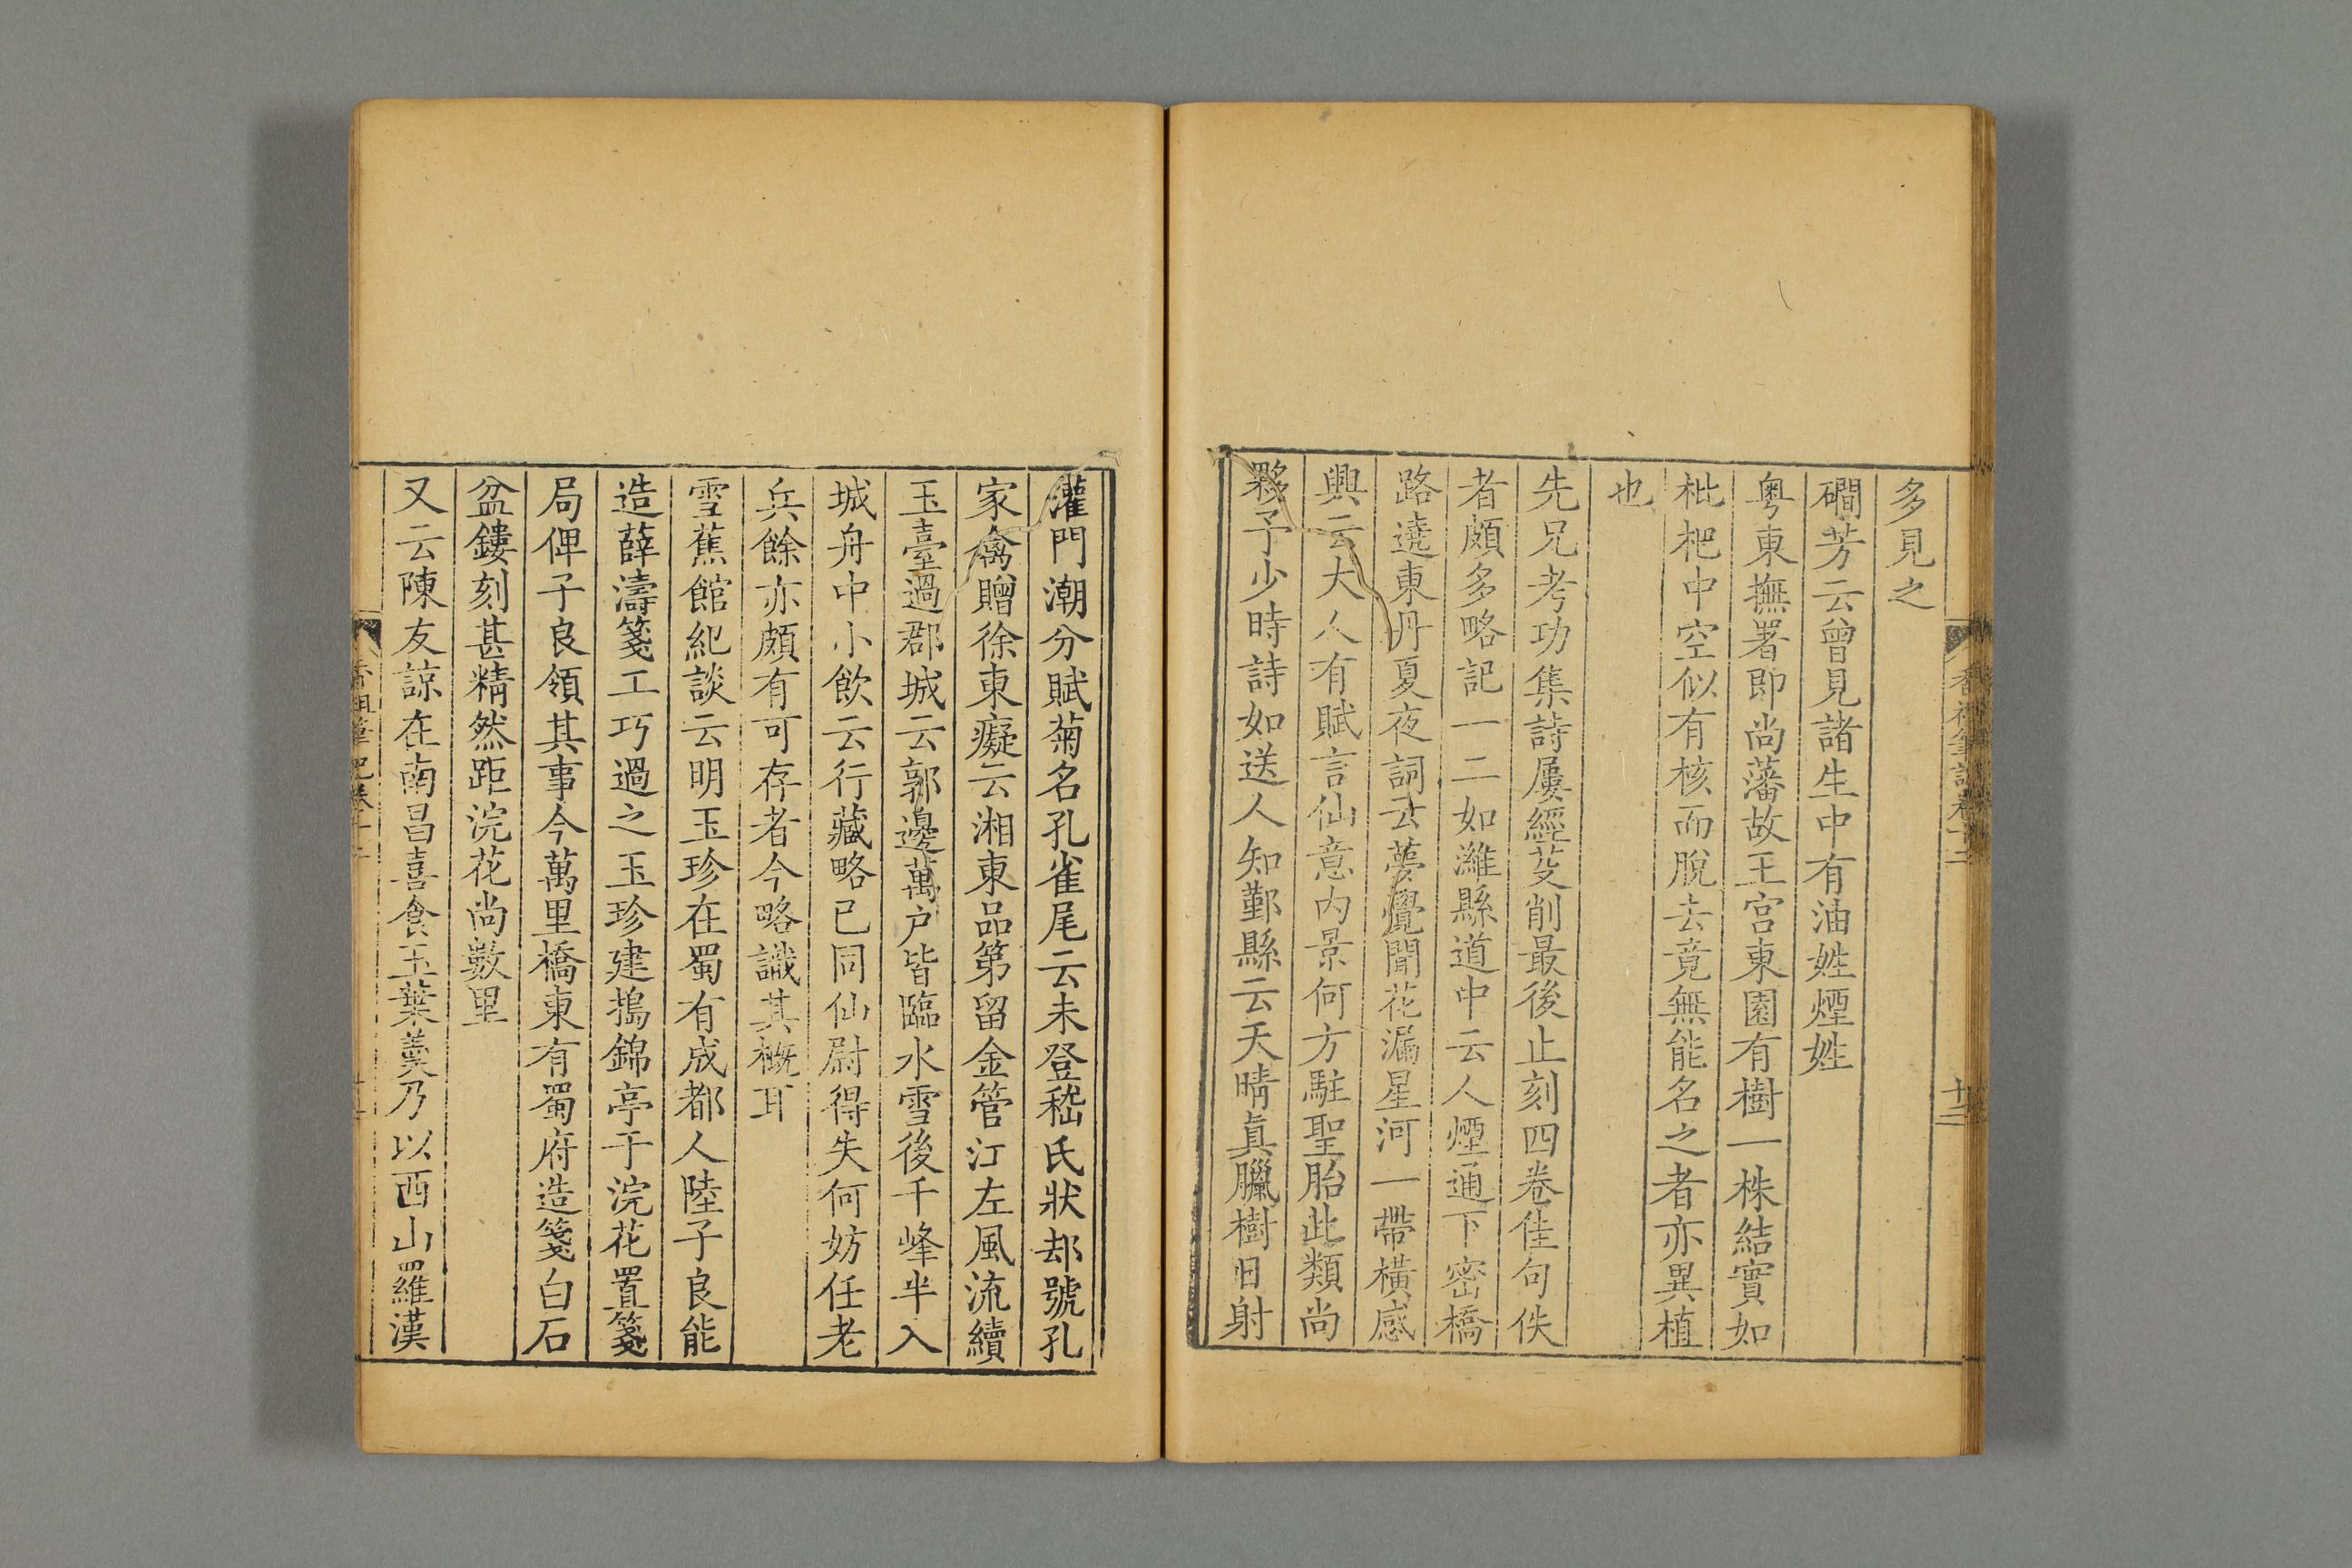 香祖筆記卷十二
十二
多見之
磵芳云曾見諸生中有油姓煙姓
粤東撫署即尚藩故王宫東園有樹一株結實如
枇杷中空似有核而脫去竟無能名之者亦異植
也
先兄考功集詩屢經芟削最後止刻四卷佳句佚
者頗多略記一二如濰縣道中云人煙通下密橋
路遶東丹夏夜詞云夢覺聞花漏星河一帶橫感
興云大人有賦言仙意内景何方駐聖胎此類尚
夥予少時詩如送人知鄞縣云天晴真臘樹日射
灌門潮分賦菊名孔雀尾云未登嵇氏狀却號孔
家禽贈徐東癡云湘東品第留金管江左風流續
玉臺過郡城云郭邊萬户皆臨水雪後千峰半入
城舟中小飲云行藏略已同仙尉得失何妨任老
兵餘亦頗有可存者今略識其概耳
雪蕉館紀談云明玉珍在蜀有成都人陸子良能
造薛濤箋工巧過之玉珍建搗錦亭于浣花置箋
局俾子良領其事今萬里橋東有蜀府造箋白石
盆鏤刻甚精然距浣花尚數里
又云陳友諒在南昌喜食玉葉羹乃以西山羅漢
香祖筆記卷十二